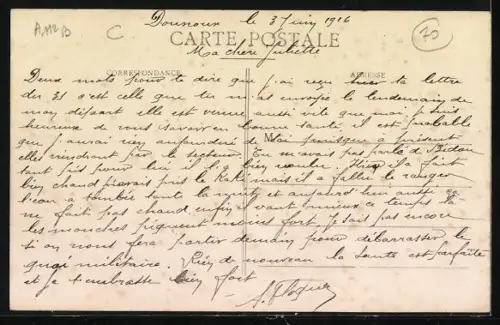 AM2B
C
70
Dounoux le 3 Juin 1916
CARTE POSTALE
Ma chère Juliette
CORRESPONDANCE
ADRESSE
Deux mots pour te dire que j'ai reçu hier ta lettre
du 31 c'est celle que tu m'as envoyé le lendemain de
mon départ elle est venue aussi vite que moi je suis
heureux de vous savoir en bonne santé il est probable
que j'aurai rien aujourd'hui de toi puisque à présent
elles viendront par le secteur Tu ne m'avais pas parlé de Bidon
tant pis pour lui il est bien Hier il a fait
bien chaud j'avais pris le Képi mais il a fallu le ranger
l'eau a tombée tant la nuit et aujourd'hui aussi ça
ne fait pas chaud enfin il vaut mieux ce temps là
les mouches piquent moins fort Je sais pas encore
si on nous fera partir demain pour débarrasser le
quai militaire. Rien de nouveau la santé est parfaite
et je t'embrasse bien fort